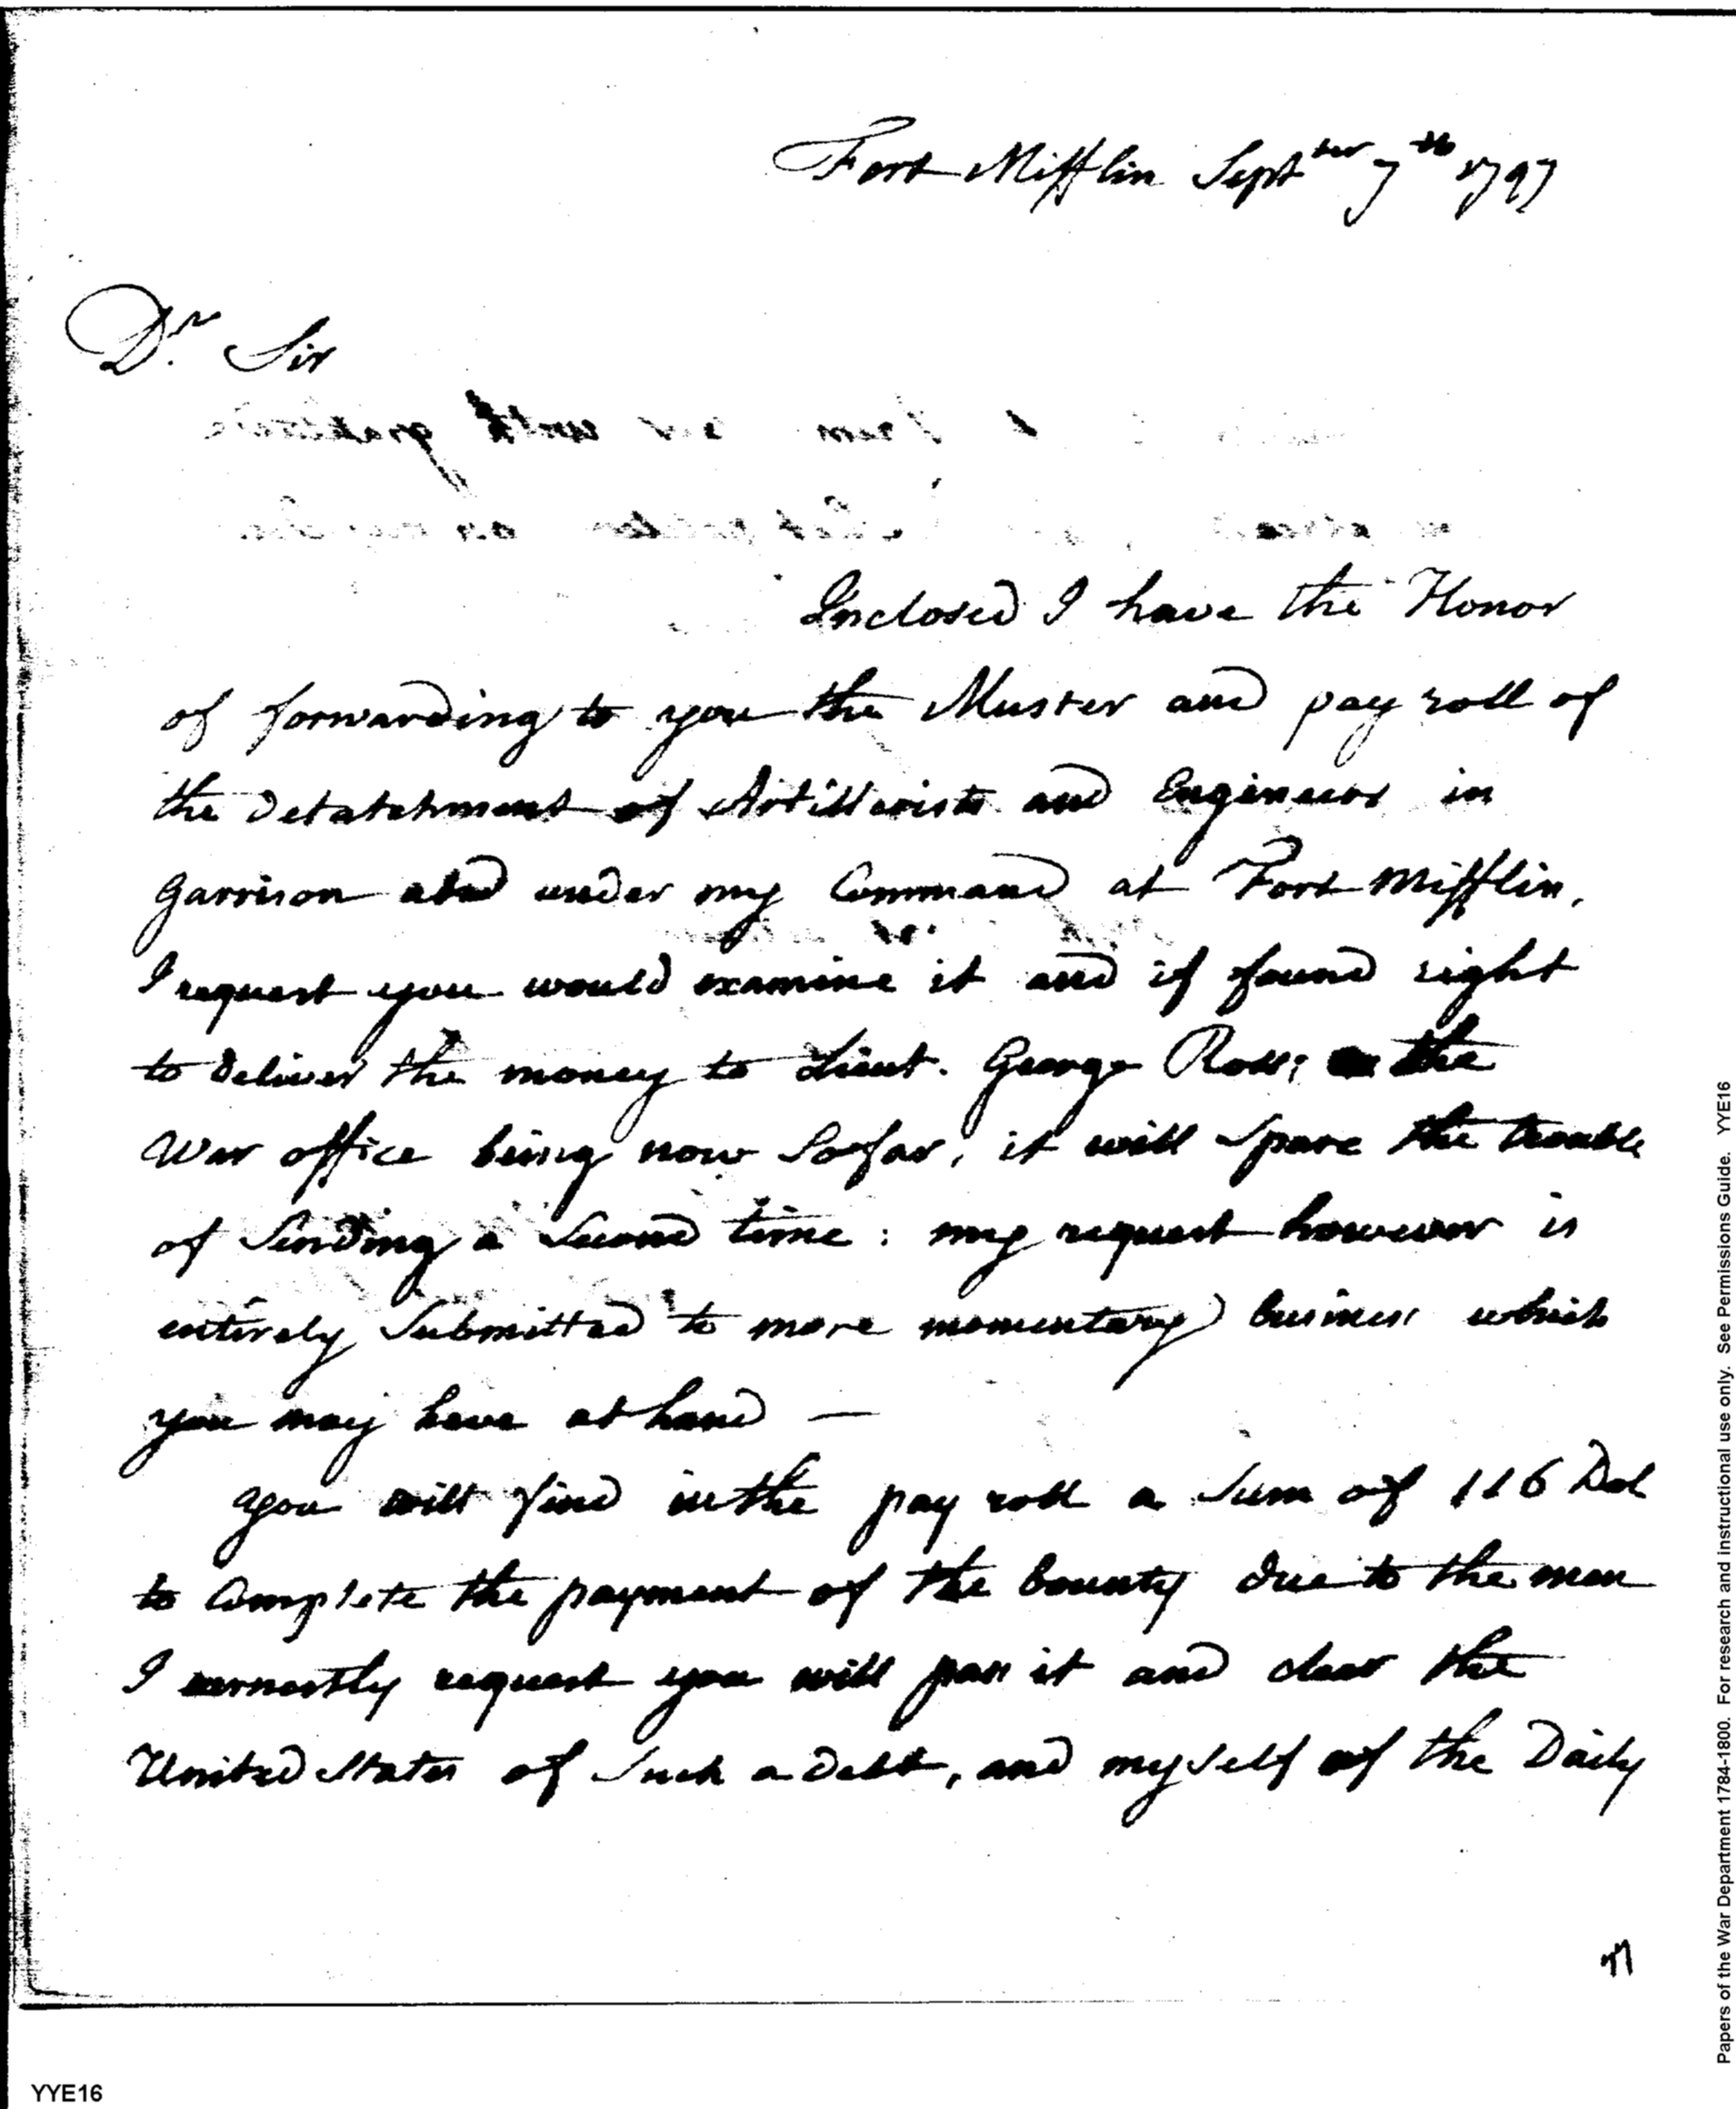 Fort Mifflin Septber 7th 1797
Dr. Sir
Inclosed I have the Honor
of forwarding to you the Muster and pay roll of
the detatchment of Artillerists and Engineers in
Garrison and under my Command at Fort Mifflin,
I request you would examine it and if found right
to deliver the money to Lieut. George Ross; the
War office being now so far, it will spare the trouble
of sending a second time : my request however is
entirely submitted to more momentary business which
you may have at hand —
you will find in the pay roll a sum of 116 Dol
to Complete the payment of the bounty due to the men
I earnestly request you will pass it and clear the
United States of such a debt, and myself of the Daily
YYE16
Papers of the War Department 1784-1800. For research and instructional use only. See Permissions Guide. YYE16